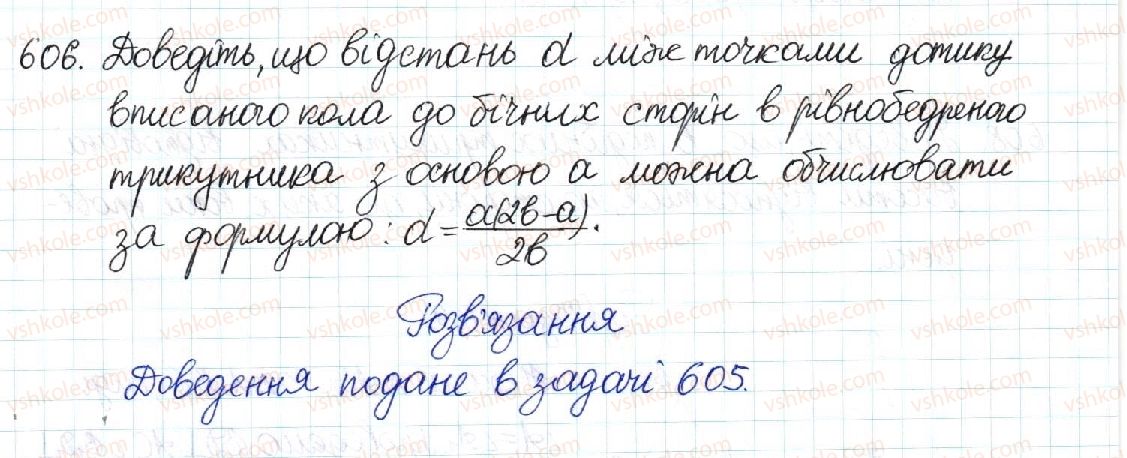 606. Доведіть, що відстань d між точками дотику
вписаного кола до бічних сторін в рівнобедреного
трикутника з основою a можна обчислювати
за формулою: d = a(2b-a)/2b.
Розв'язання
Доведення подане в задачі 605.